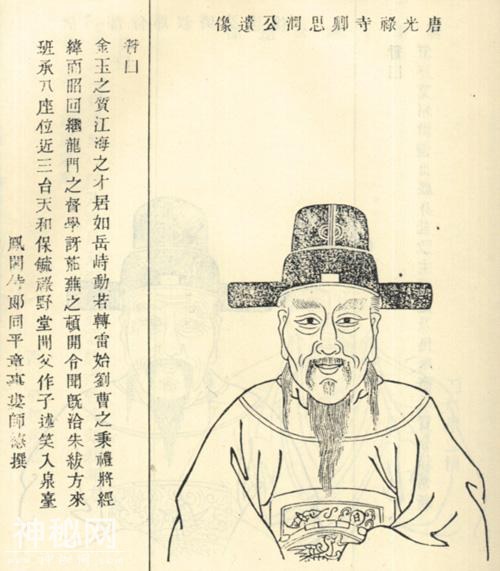 唐光祿寺卿思潤公遺像
贊曰
金玉之質江海之才居如岳峙動若轉雷始劉曹之秉禮將經
緯而昭回繼龍門之督學訝蕪之頓開令聞旣洽朱紱方來
班承八座位近三台天和保毓綠野堂開父作子述笑入泉臺
鳳閣侍郎同平章事婁師德撰
神秘网